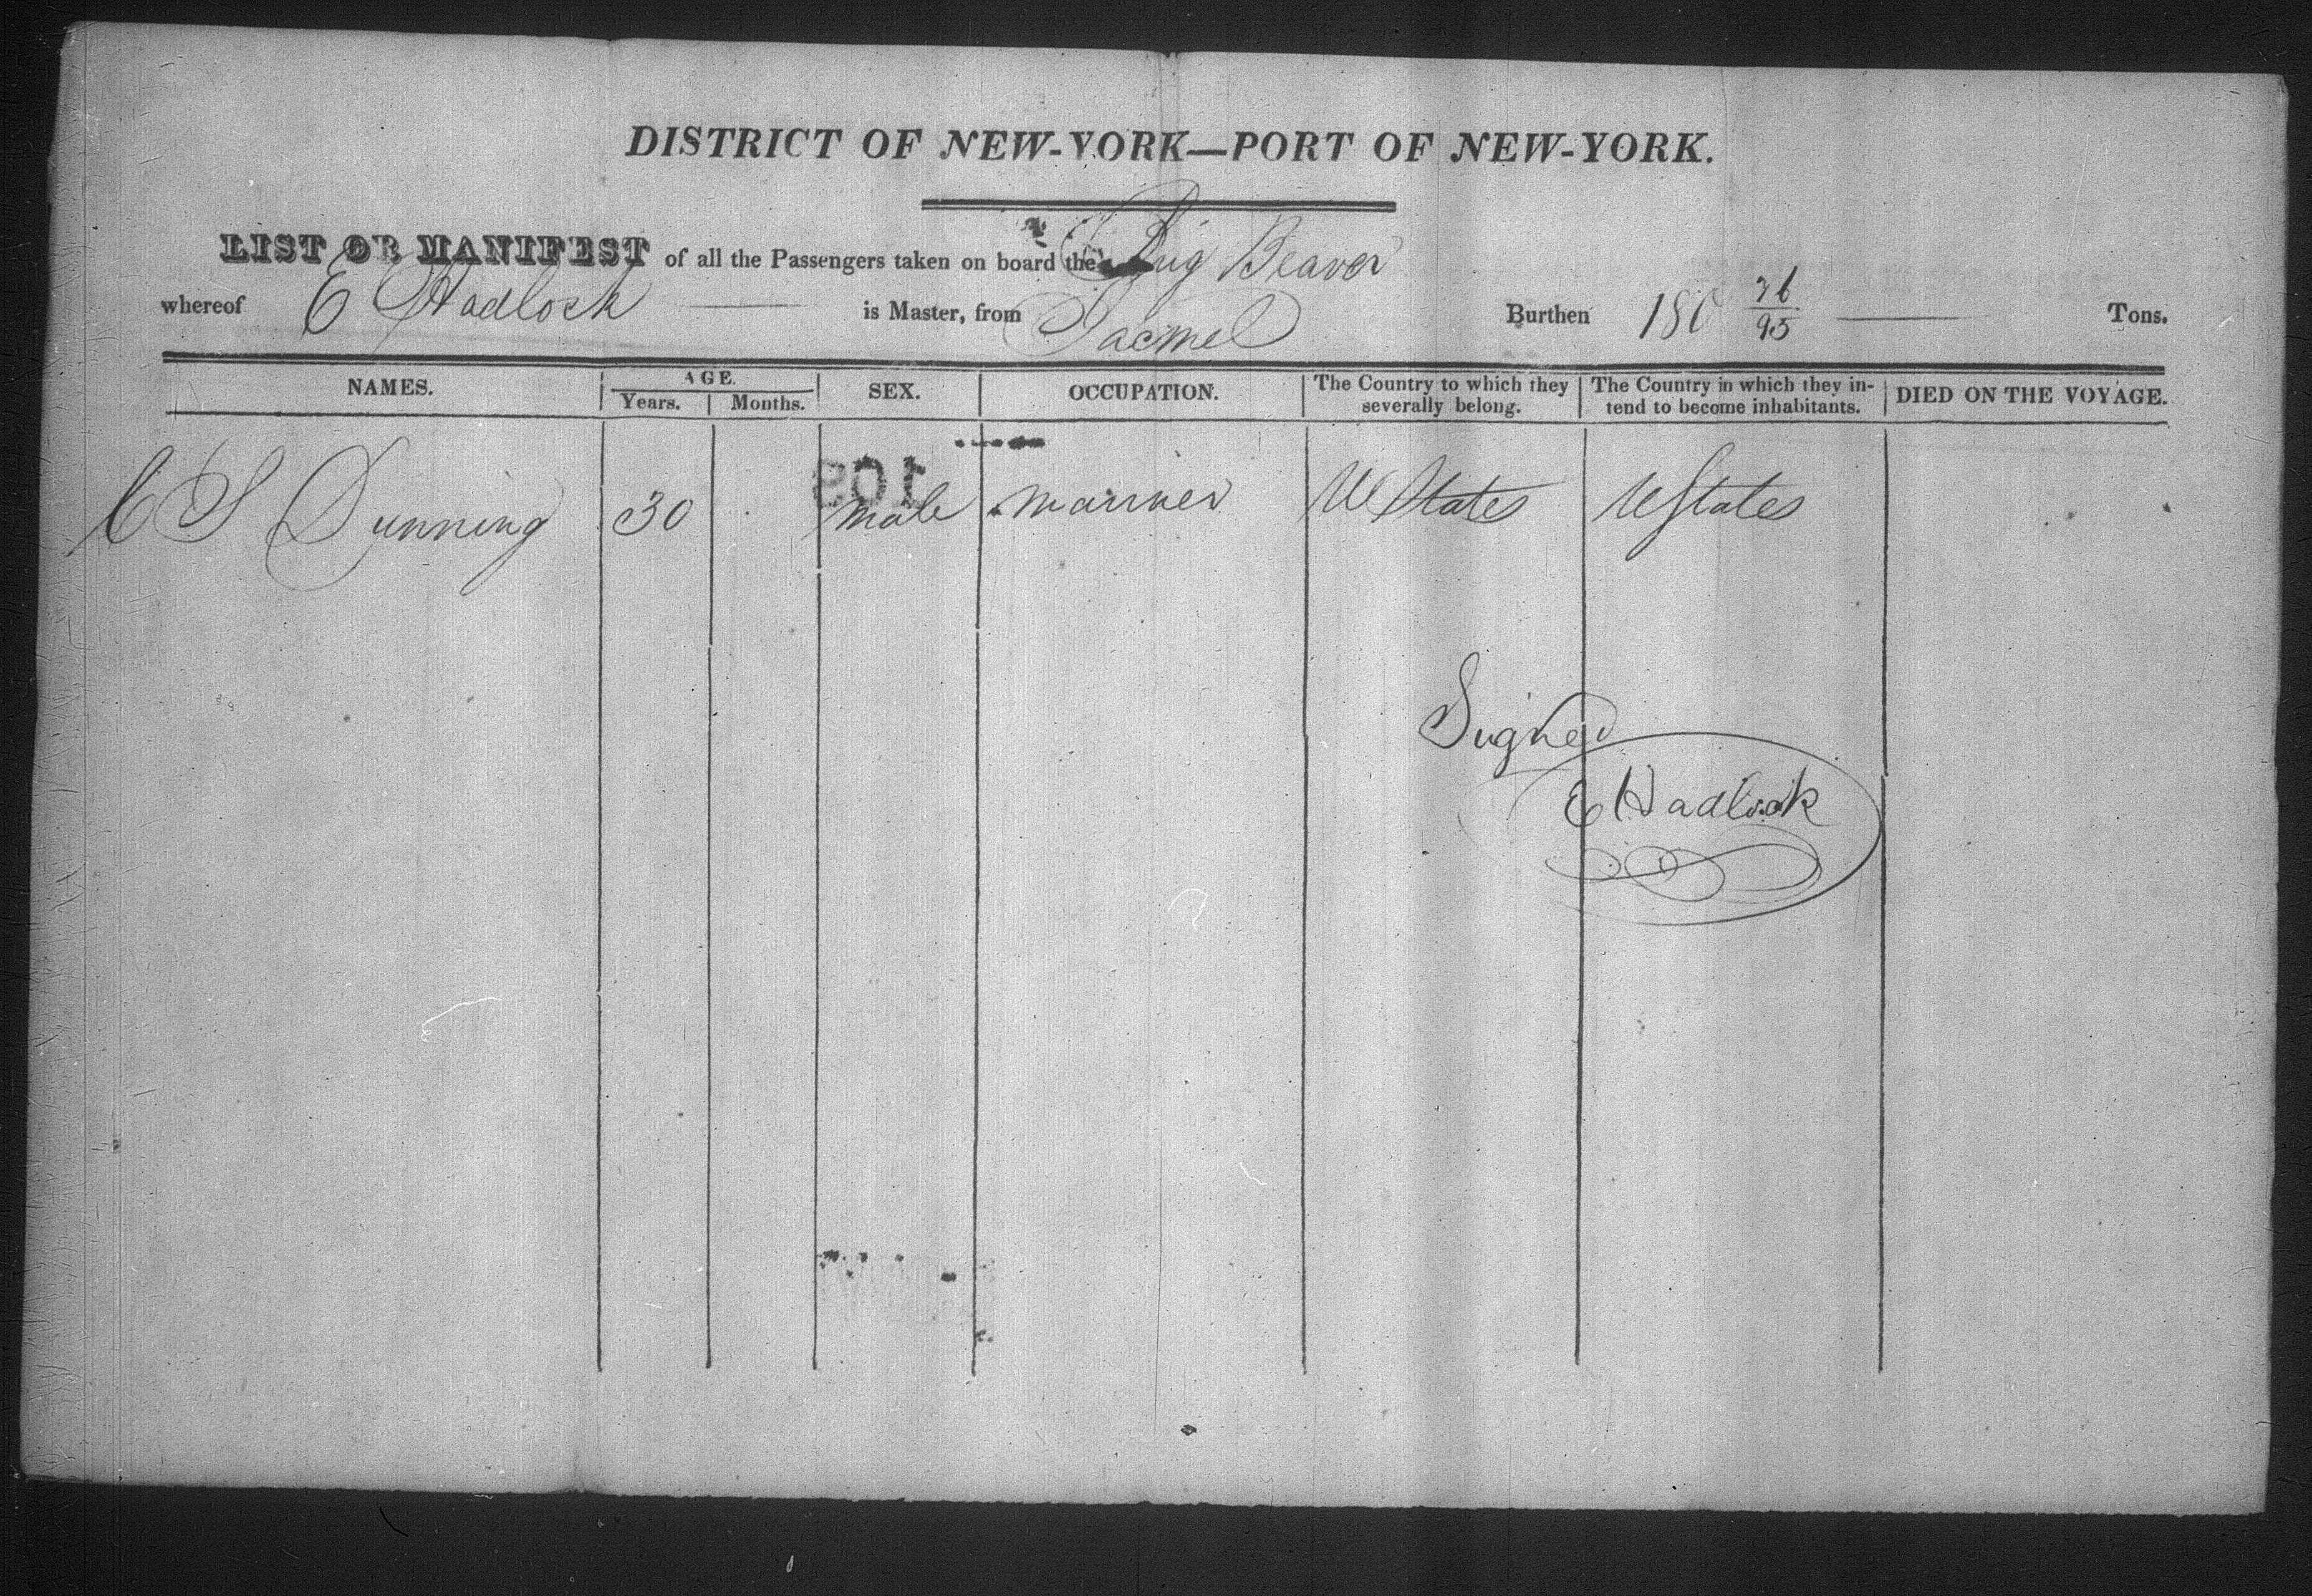 DISTRICT OF NEW-YORK—PORT OF NEW-YORK.
LIST OR MANIFEST of all the Passengers taken on board the Brig Beaver
whereof E Hadlock is Master, from Jacmel Burthen 180 76/95 Tons.
NAMES. AGE. Years. Months. SEX. OCCUPATION. The Country to which they severally belong. The Country in which they intend to become inhabitants. DIED ON THE VOYAGE.
109
C S Dunning 30 male mariner U States U States
Signed
E Hadlock